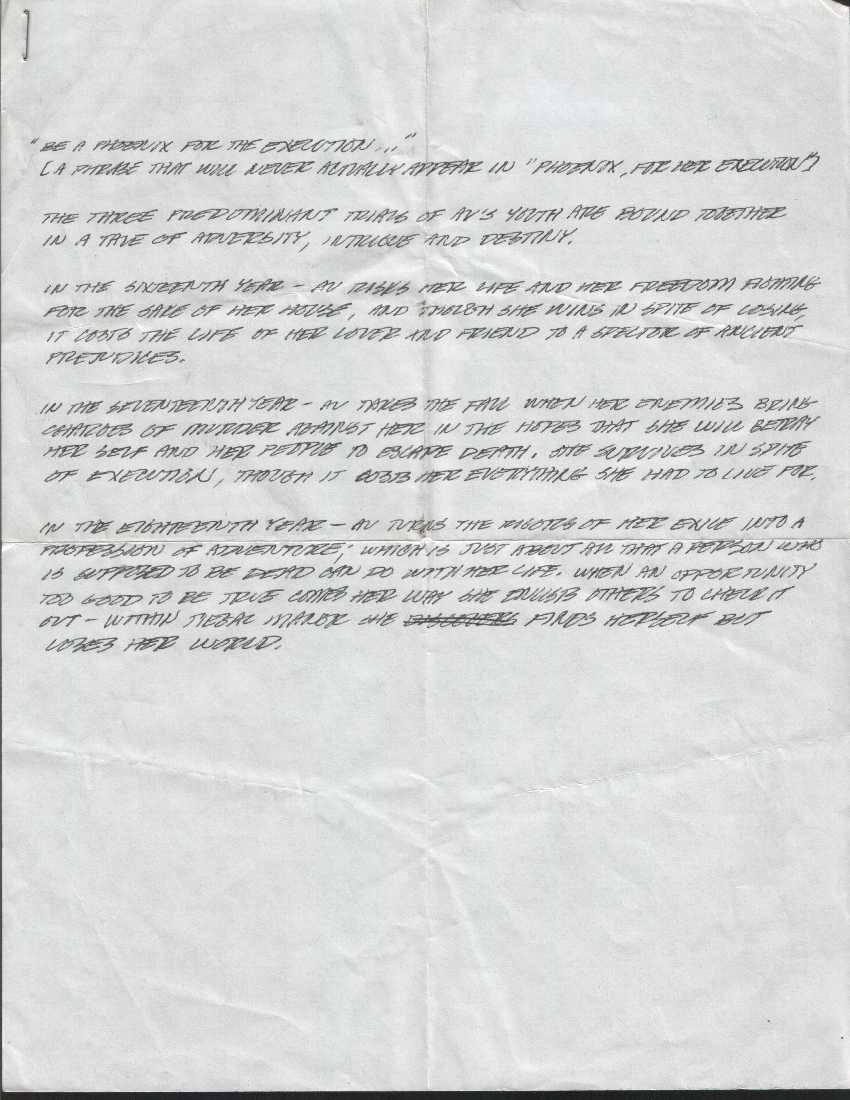 "BE A PHOENIX FOR THE EXECUTION..."
[A PHRASE THAT WILL NEVER ACTUALLY APPEAR IN "PHOENIX, FOR HER EXECUTION"]
THE THREE PREDOMINANT TRIALS OF AV'S YOUTH ARE BOUND TOGETHER
IN A TALE OF ADVERSITY, INTRIGUE AND DESTINY.
IN THE SIXTEENTH YEAR – AV RISKS HER LIFE AND HER FREEDOM FIGHTING
FOR THE SAKE OF HER HOUSE, AND THOUGH SHE WINS IN SPITE OF LOSING,
IT COSTS THE LIFE OF HER LOVER AND FRIEND TO A SPECTOR OF ANCIENT
PREJUDICES.
IN THE SEVENTEENTH YEAR – AV TAKES THE FALL WHEN HER ENEMIES BRING
CHARGES OF MURDER AGAINST HER IN THE HOPES THAT SHE WILL BETRAY
HER SELF AND HER PEOPLE TO ESCAPE DEATH. SHE SURVIVES IN SPITE
OF EXECUTION, THOUGH IT COSTS HER EVERYTHING SHE HAD TO LIVE FOR.
IN THE EIGHTEENTH YEAR – AV TURNS THE RIGORS OF HER EXILE INTO A
PROFESSION OF ADVENTURE, WHICH IS JUST ABOUT ALL THAT A PERSON WHO
IS SUPPOSED TO BE DEAD CAN DO WITH HER LIFE. WHEN AN OPPORTUNITY
TOO GOOD TO BE TRUE COMES HER WAY SHE ENLISTS OTHERS TO CHECK IT
OUT – WITHIN MANOR SHE DISCOVERS FINDS HERSELF BUT
LOSES HER WORLD.